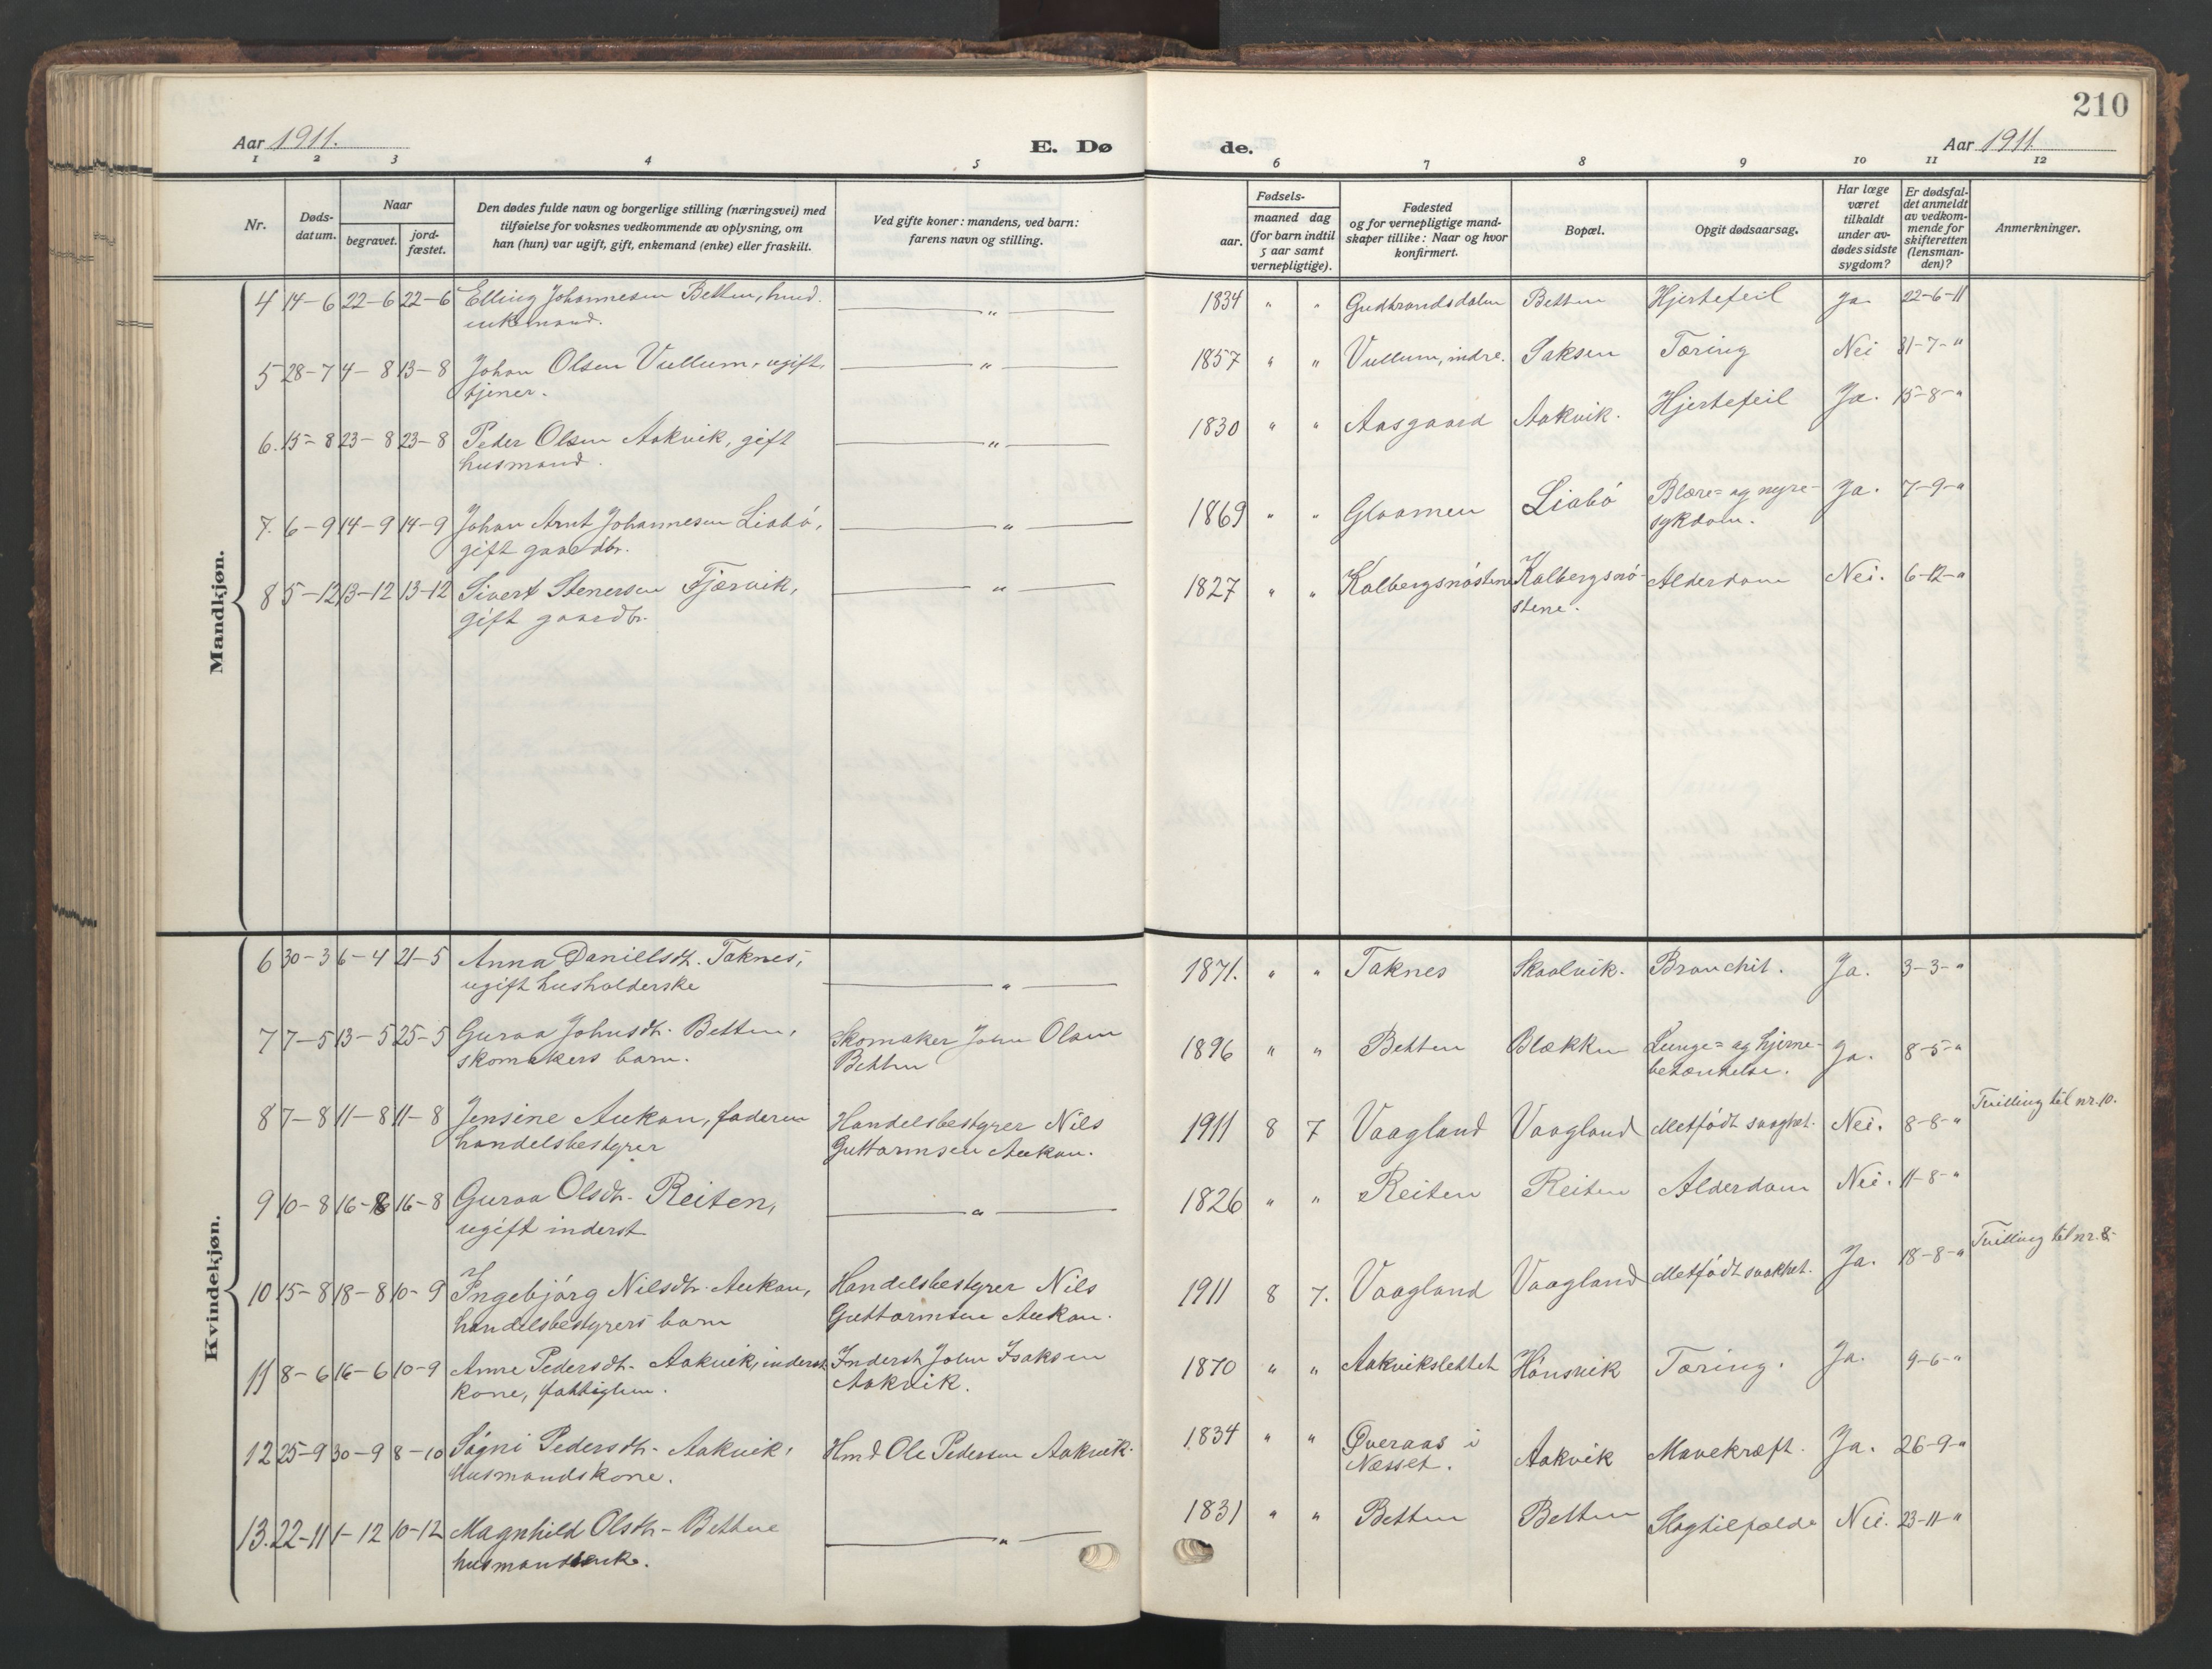 210
Aar 1911.
E. Dø
de.
Aar 1911
1 2 3 4 5
6 7 8 9 10 11 12
Nr.
Døds-
datum.
Naar
begravet.
jord-
fæstet.
Den dødes fulde navn og borgerlige stilling (næringsvei) med
tilføielse for voksnes vedkommende av oplysning, om
han (hun) var ugift, gift, enkemand (enke) eller fraskilt.
Ved gifte koner: mandens, ved barn:
farens navn og stilling.
Fødsels-
aar.
maaned dag
(for barn indtil
5 aar samt
vernepligtige).
Fødested
og for vernepligtige mand-
skaper tillike: Naar og hvor
konfirmert.
Bopæl.
Opgit dødsaarsag.
Har læge
været
tilkaldt
under av-
dødes sidste
sygdom?
Er dødsfal-
det anmeldt
av vedkom-
mende for
skifteretten
(lensman-
den)?
Anmerkninger.
Mandkjøn.
4 14-6 22-6 22-6 Elling Johannesen Betten, husmd.
enkemand.
" 1834 " " Gudbrandsdalen Betten Hjertefeil Ja. 22-6-11
5 28-7 4-8 13-8 Johan Olsen Vullum, ugift,
tjener.
" 1857 " " Vullum, indre. Saksen Tæring Nei 31-7-"
6. 15-8 23-8 23-8 Peder Olsen Aakvik, gift
husmand.
" 1830 " " Aasgaard Aakvik. Hjertefeil Ja. 15-8-"
7. 6-9 14-9 14-9 Johan Arnt Johannesen Liabø,
gift gaardbr.
" 1869 " " Glaamen Liabø Blære= og nyre-
sykdom.
Ja. 7-9-"
8 5-12 13-12 13-12 Sivert Stenersen Fjærvik,
gift gaardbr.
" 1827 " " Kalbergsnøstene Kalbergsnø-
stene.
Alderdom Nei. 6-12-"
Kvindekjøn.
6 30-3 6-4 21-5 Anna Danielsdt. Taknes,
ugift husholderske
" 1871. " " Taknes Skaalvik. Bronchit. Ja. 3-3-"
7 7-5 13-5 25-5 Guroa Johnsdt. Betten,
skomakers barn.
Skomaker John Olsen
Betten
1896 " " Betten Blækken Lunge= og hjerne-
betændelse.
Ja. 8-5-"
8 7-8 11-8 11-8 Jensine Aukan, faderen
handelsbestyrer
Handelsbestyrer Nils
Guttormsen Aukan.
1911 8 7 Vaagland Vaagland Metfødt svaghet. Nei. 8-8-" Tvilling til nr. 10.
9 10-8 16-8 16-8 Guroa Olsdt. Reiten,
ugift inderst
" 1826 " " Reiten Reiten Alderdom Nei. 11-8-"
10 15-8 18-8 10-9 Ingebjørg Nilsdt. Aukan,
handelsbestyrers barn
Handelsbestyrer Nils
Guttormsen Aukan.
1911 8 7. Vaagland Vaagland Metfødt svakhet. Ja. 18-8-" Tvilling til nr. 8.
11 8-6 16-6 10-9 Anne Pedersdt. Aakvik, inderst
kone, fattiglem.
Inderst John Isaksen
Aakvik.
1870 " " Aakvikslettet Hønsvik Tæring. Ja. 9-6-"
12 25-9 30-9 8-10 Søgni Pedersdt. Aakvik,
husmandskone.
Hmd Ole Pedersen Aakvik.
1834 " " Øveraas i
Næsset.
Aakvik Mavekræft. Ja. 26-9-"
13. 22-11 1-12 10-12 Magnhild Olsdt. Betten
husmandsenke.
" 1831 " " Betten Betten Slagtilfælde Nei. 23-11-"